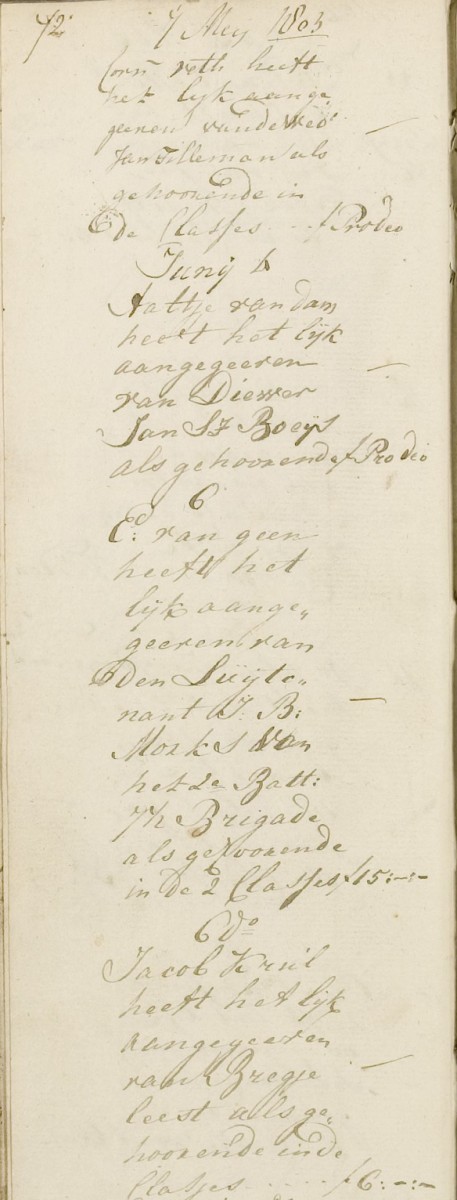 72
7 Meij 1803
Corn roth heeft
het lijk aange„
geeven vande Wed
Jan Tilleman als
gehoorende in
de Classes f Prodeo
Junij
Aaltje van dam
heeft het lijk
aangegeeven
van Diewer
Jan Sz Boeijs
als gehoorende f Prodeo
6
E: van geen
heeft het
lijk aange„
geeven van
den Luijte„
nant J: B:
Morks van
het 2e Batt:
7h Brigade
als gehoorende
in de 2 Classes f 15:-:-
6 do
Jacob Kruil
heeft het lijk
aangegeeven
van Bregje
leest als ge„
hoorende inde
Classes f 6:-:-